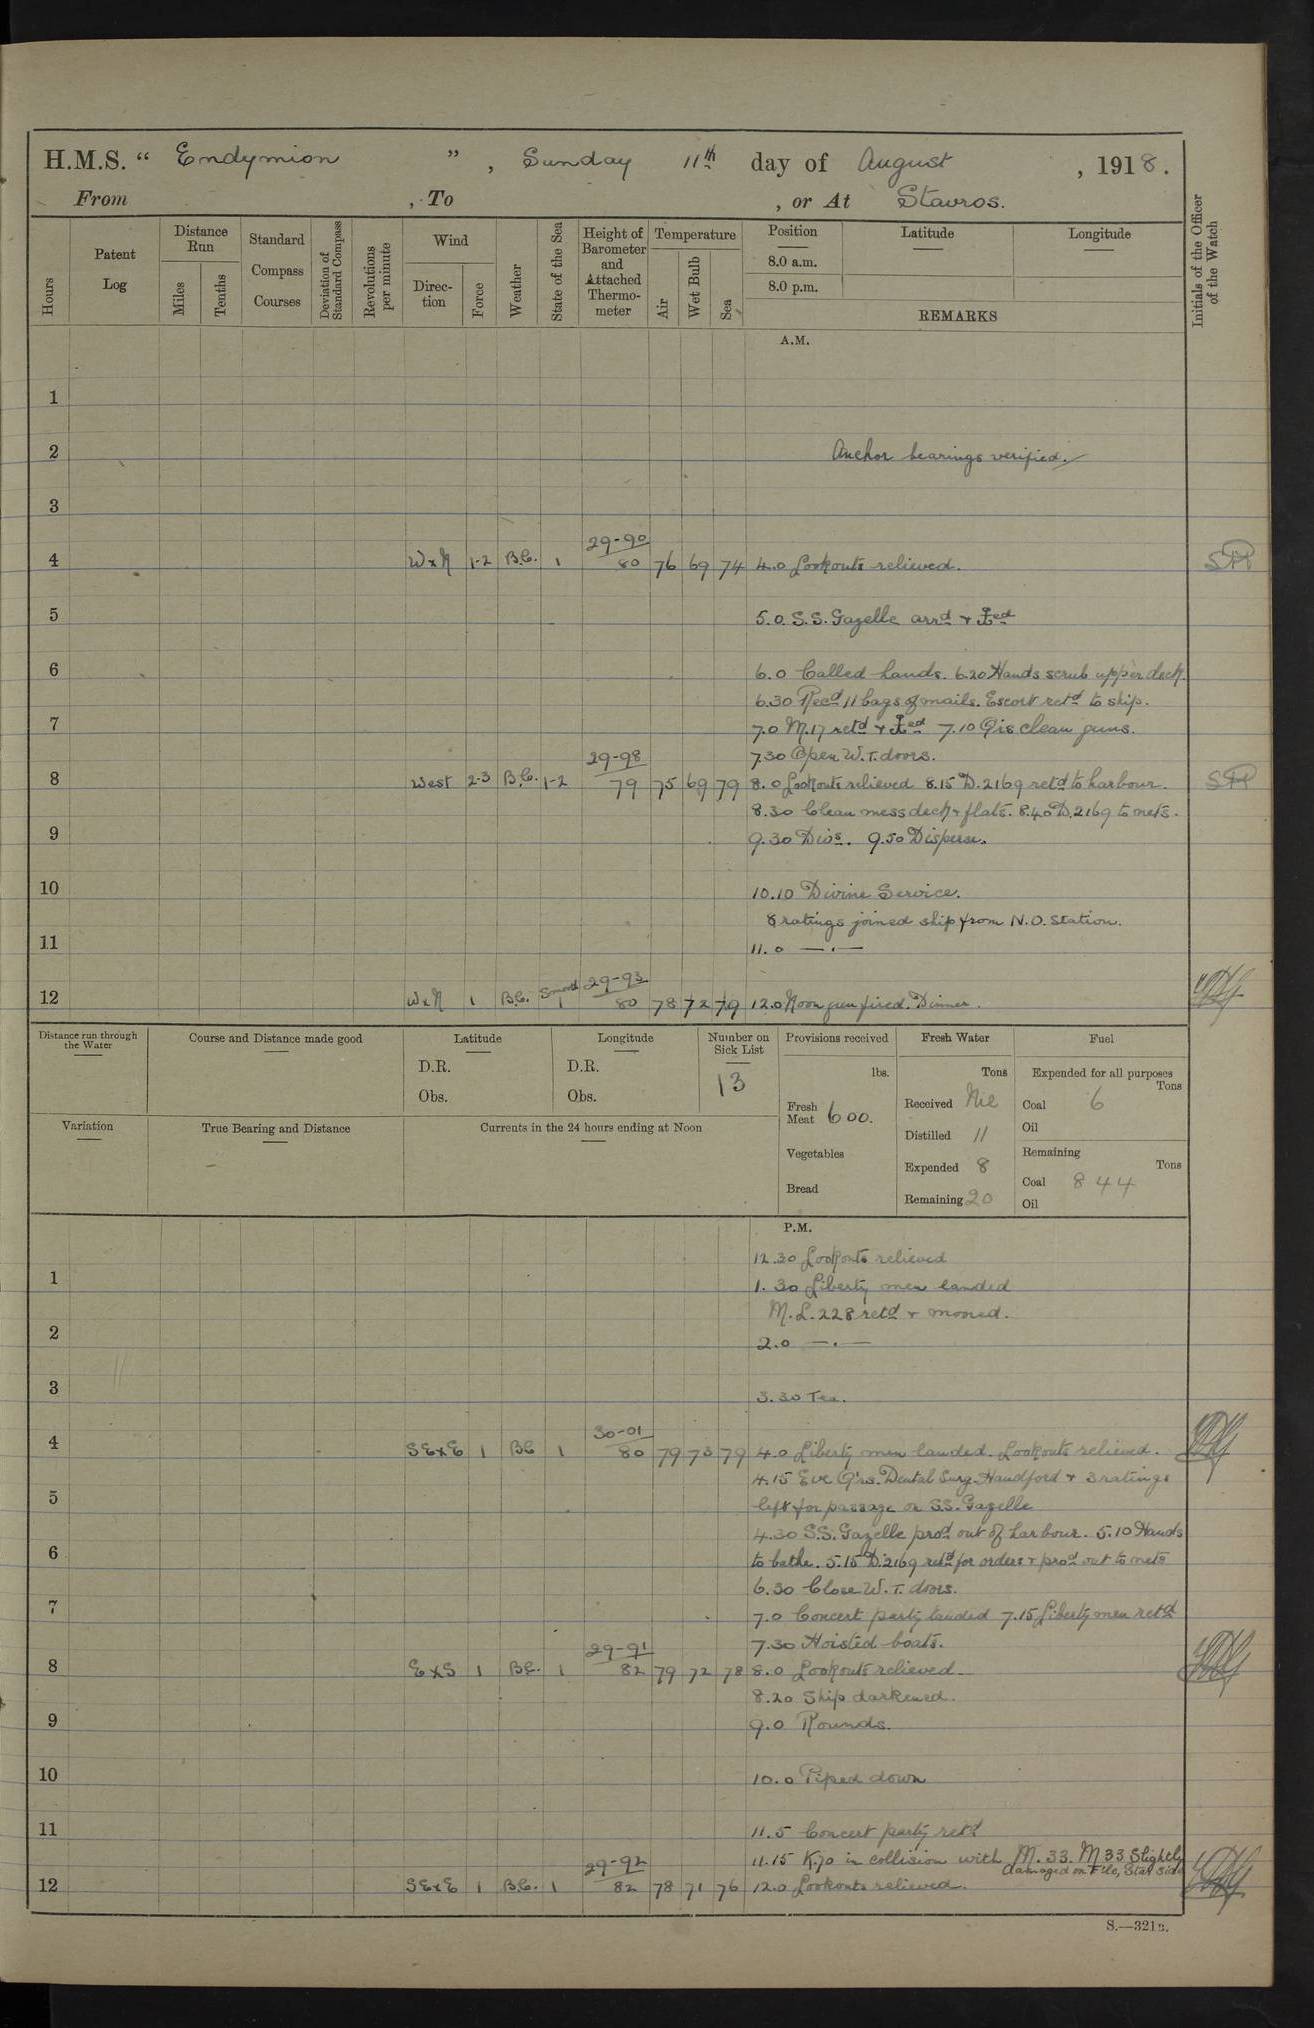 H.M.S. “ Endymion ” , Sunday 11th day of August , 1918.
From , To , or At Stavros.
Hours
Patent Log
Distance Run
Miles
Tenths
Standard Compass Courses
Deviation of Standard Compass
Revolutions per minute
Wind
Direction
Force
Weather
State of the Sea
Height of Barometer and Attached Thermometer
Temperature
Air
Wet Bulb
Sea
Position
8.0 a.m.
8.0 p.m.
Latitude
Longitude
REMARKS
Initials of the Officer of the Watch
A.M.
1
2 Anchor bearings verified.
3
29-90
4 W x N 1-2 B.C. 1 80 76 69 74 4.0 Lookouts relieved.
5 5.0. S.S. Gazelle arrd & ⚓ed
6 6.0 Called hands. 6.20 Hands scrub upper deck.
6.30 Recd 11 bags of mails. Escort retd to ship.
7 7.0 M.17 retd & ⚓ed 7.10 Qrs clean guns.
29-98 7.30 Open W.T. doors.
8 West 2-3 B.C. 1-2 79 75 69 79 8.0 Lookouts relieved 8.15 D.2169 retd to harbour.
8.30 Clean mess deck & flats. 8.40 D.2169 to nets.
9 9.30 Divs. 9.50 Disperse.
10 10.10 Divine Service.
8 ratings joined ship from N.O. Station.
11 11.0 —.—
29-93
12 W x N 1 B.C. Smooth 1 80 78 72 79 12.0 Noon gun fired. Dinner.
Distance run through the Water
Course and Distance made good
Latitude
D.R.
Obs.
Longitude
D.R.
Obs.
Number on Sick List
13
Provisions received
lbs.
Fresh Meat 600.
Vegetables
Bread
Fresh Water
Tons
Received Nil
Distilled 11
Expended 8
Remaining 20
Fuel
Expended for all purposes
Tons
Coal 6
Oil
Remaining
Tons
Coal 844
Oil
Variation
True Bearing and Distance
Currents in the 24 hours ending at Noon
P.M.
12.30 Lookouts relieved
1 1.30 Liberty men landed
M.L. 228 retd & moored.
2 2.0 —.—
3 3.30 Tea.
30-01
4 SE x E 1 BC 1 80 79 73 79 4.0 Liberty men landed. Lookouts relieved.
4.15 Eve Qrs. Dental Surg. Handford & 3 ratings
5 left for passage on S.S. Gazelle
4.30 S.S. Gazelle procd out of harbour. 5.10 Hands
6 to bathe. 5.15 D.2169 retd for orders & procd out to nets
6.30 Close W.T. doors.
7 7.0 Concert party landed 7.15 Liberty men retd
29-91 7.30 Hoisted boats.
8 E x S 1 B.C. 1 82 79 72 78 8.0 Lookouts relieved.
8.20 Ship darkened.
9 9.0 Rounds.
10 10.0 Piped down
11 11.5 Concert party retd
29-92 11.15 K.70 in collision with M.33. M33 Slightly
damaged on F'cle, Star side
12 SE x E 1 B.C. 1 82 78 71 76 12.0 Lookouts relieved.
S.—321B.